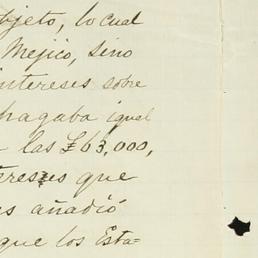 bjeto, lo cual
Mejico, sino
intereses sobre
pagaba igual
las £63,000,
tereses que
es añadió
que los Esta=